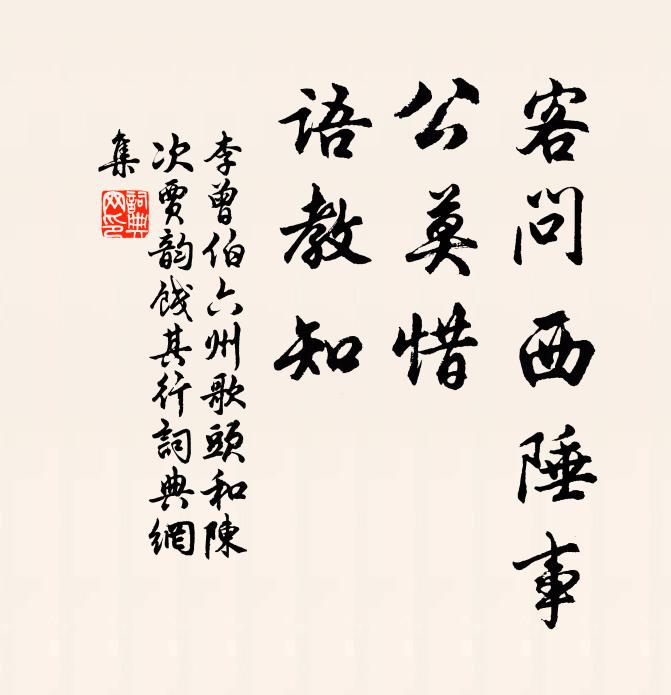 客问西陲事
公莫惜
语教知
李曾伯六州歌頭和陳
次贾韵饯其行詞典網
集
詞典網印